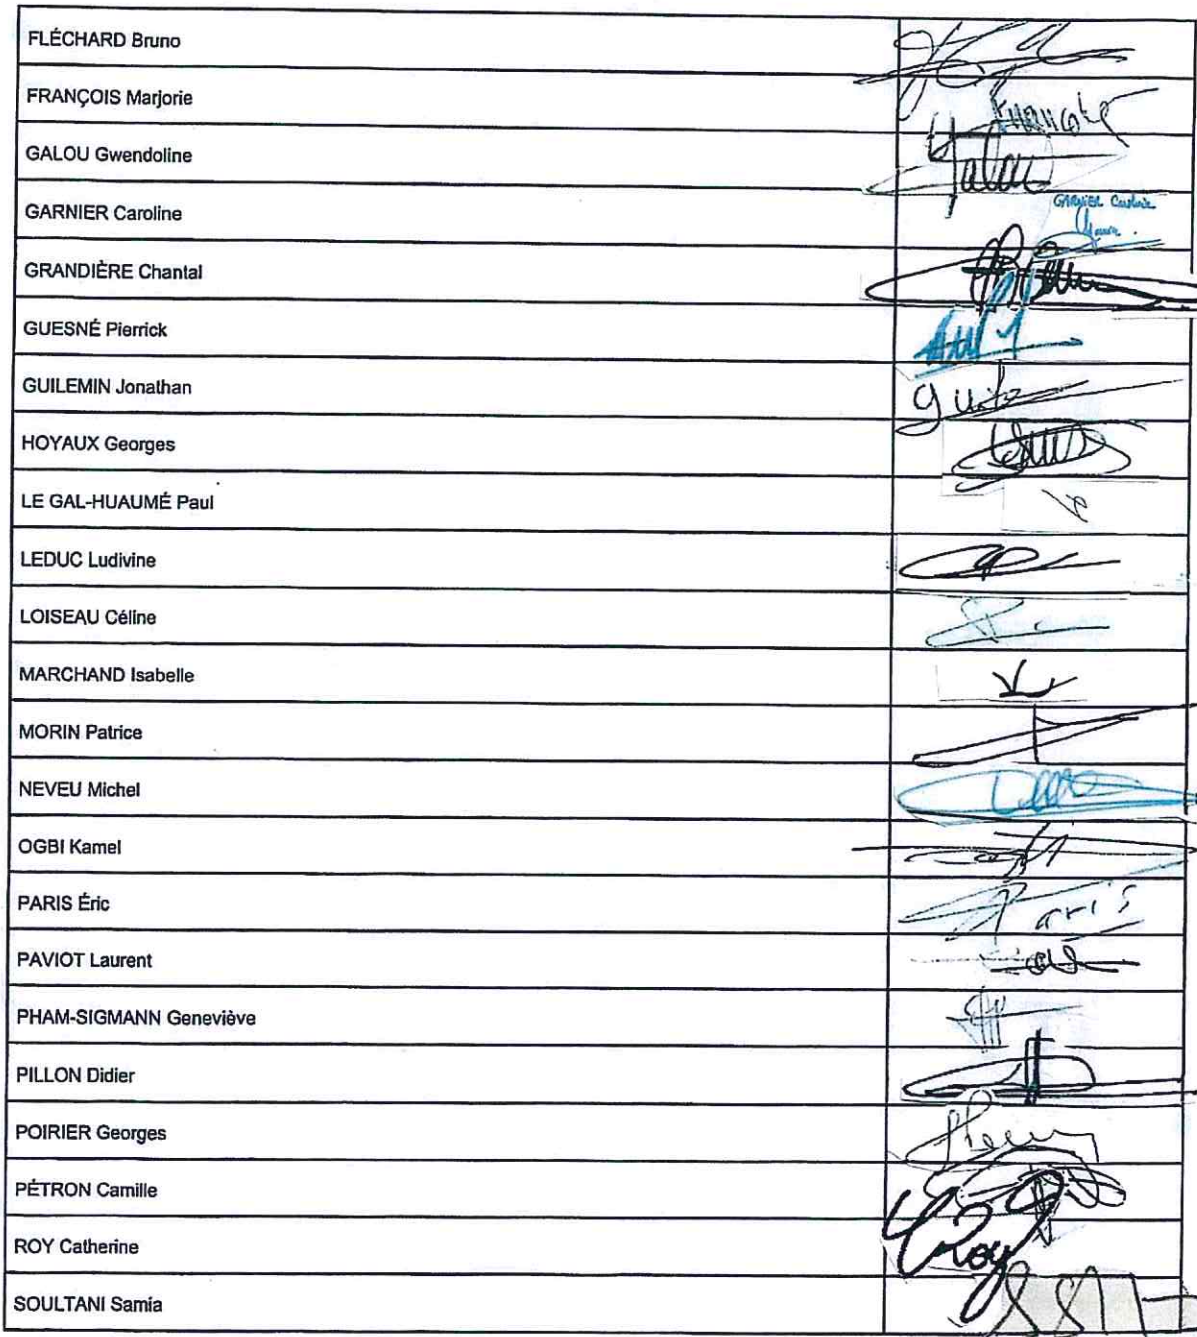 FLÉCHARD Bruno
FRANÇOIS Marjorie
GALOU Gwendoline
Galou
GARNIER Caroline
GARNIER Caroline
GRANDIÈRE Chantal
GUESNÉ Pierrick
GUILEMIN Jonathan
HOYAUX Georges
LE GAL-HUAUMÉ Paul
LEDUC Ludivine
LOISEAU Céline
MARCHAND Isabelle
MORIN Patrice
NEVEU Michel
OGBI Kamel
PARIS Éric
Paris
PAVIOT Laurent
PHAM-SIGMANN Geneviève
PILLON Didier
POIRIER Georges
PÉTRON Camille
ROY Catherine
CRoy
SOULTANI Samia